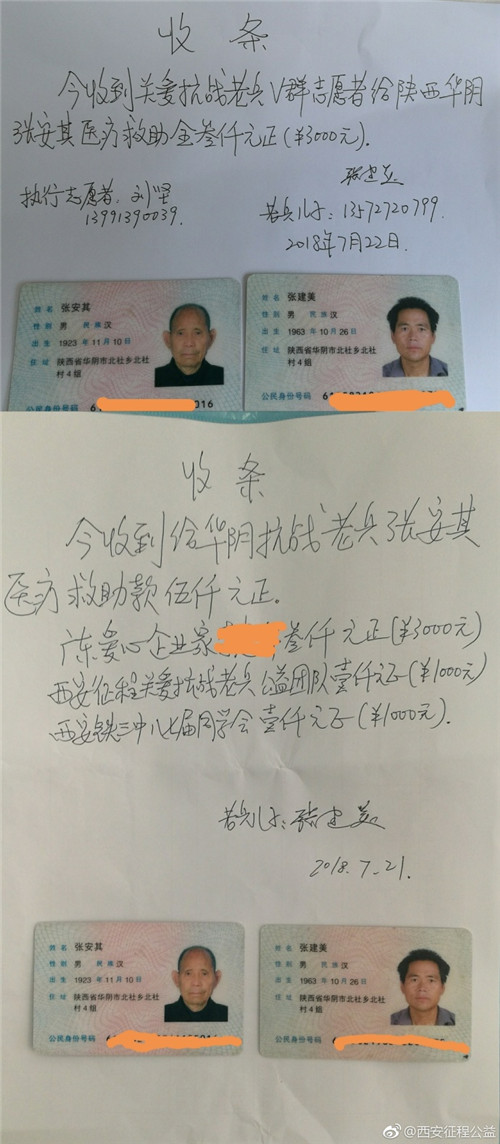 收条
今收到关爱抗战老兵V群志愿者给陕西华阴
张安其医疗救助金叁仟元正(¥3000元).
张建美
执行志愿者:刘坚
13991390039.
老兵儿子:13572720799.
2018年7月22日.
姓名 张安其
性别 男 民族 汉
出生 1923 年 11 月 10 日
住址 陕西省华阴市北社乡北社
村4组
公民身份号码 6 016
姓名 张建美
性别 男 民族 汉
出生 1963 年 10 月 26 日
住址 陕西省华阴市北社乡北社
村4组
公民身份号码
收条
今收到给华阴抗战老兵张安其
医疗救助款伍仟元正.
广东爱心企业家 叁仟元正(¥3000元)
西安征程关爱抗战老兵公益团队壹仟元正(¥1000元)
西安铁三中八七届同学会壹仟元正(¥1000元).
老兵儿子:张建美
2018.7.21.
姓名 张安其
性别 男 民族 汉
出生 1923 年 11 月 10 日
住址 陕西省华阴市北社乡北社
村4组
公民身份号码
姓名 张建美
性别 男 民族 汉
出生 1963 年 10 月 26 日
住址 陕西省华阴市北社乡北社
村4组
公民身份号码
@西安征程公益